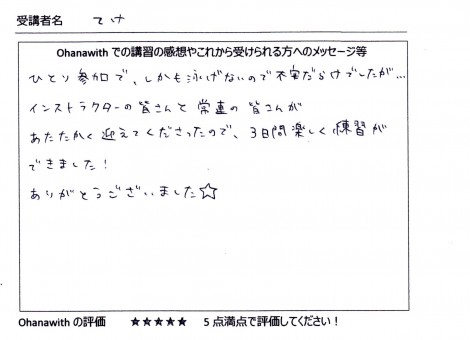 受講者名 てけ
Ohanawith での講習の感想やこれから受けられる方へのメッセージ等
ひとり参加で、しかも泳げないので不安だらけでしたが…
インストラクターの皆さんと常連の皆さんが
あたたかく迎えてくださったので、3日間楽しく練習が
できました！
ありがとうございました☆
Ohanawith の評価 ★★★★★ 5点満点で評価してください！